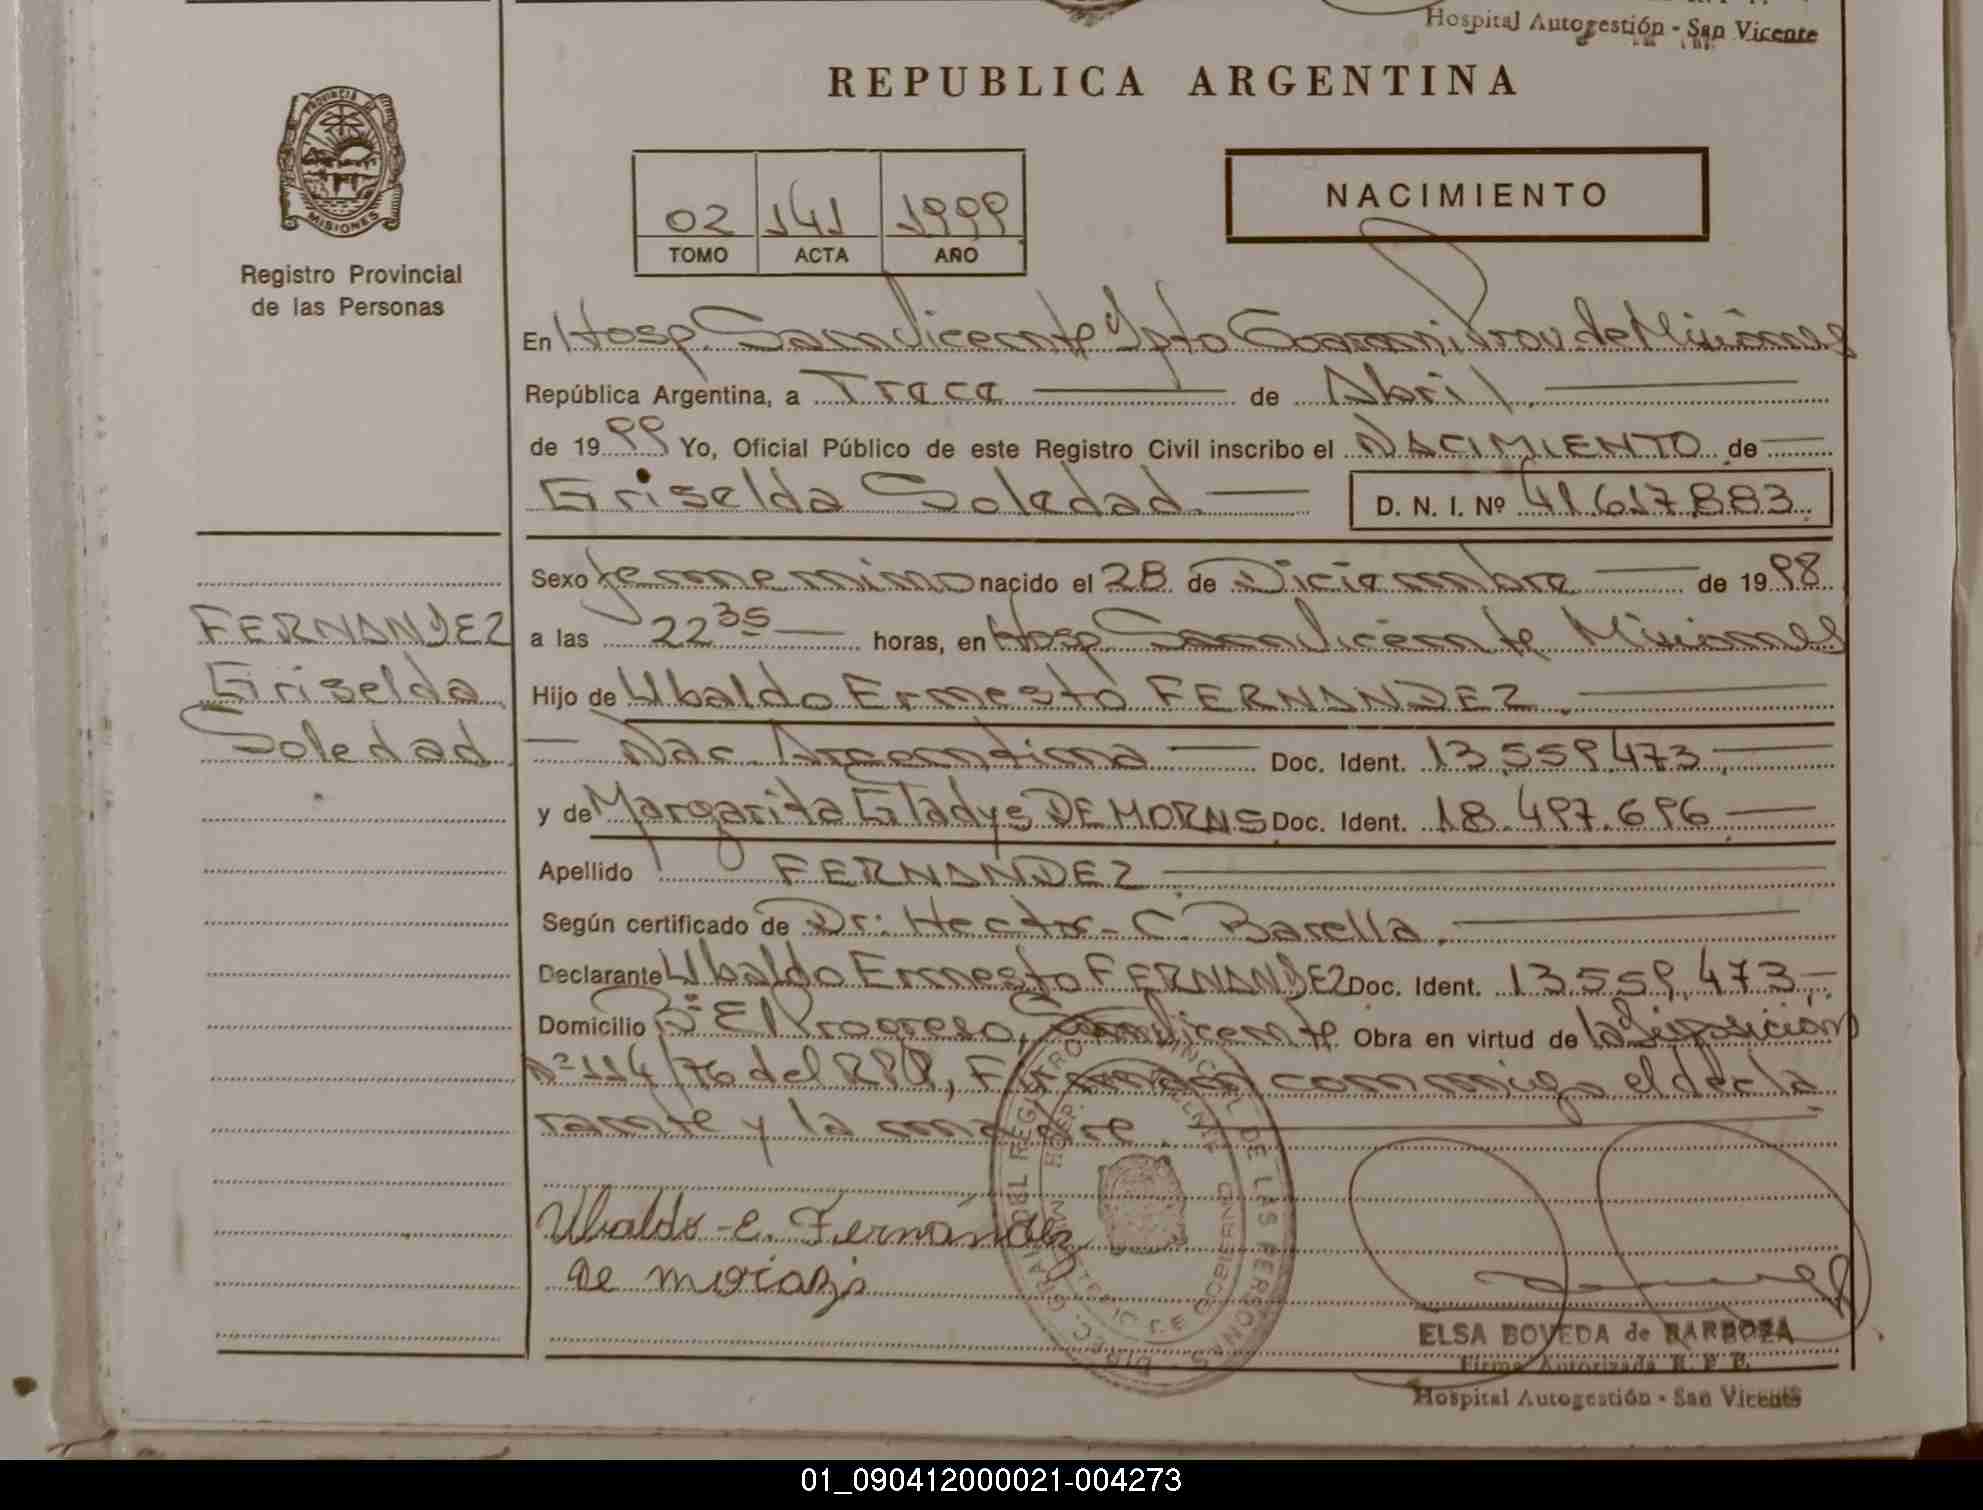 Hospital Autogestión - San Vicente
REPUBLICA ARGENTINA
PROVINCIA DE
MISIONES
Registro Provincial
de las Personas
02 141 1999
TOMO ACTA AÑO
NACIMIENTO
En Hosp. San Vicente Dpto Guarani Prov. de Misiones
República Argentina, a Trece de Abril
de 1999 Yo, Oficial Público de este Registro Civil inscribo el NACIMIENTO de
Griselda Soledad D. N. I. Nº 41.617.883
Sexo femenino nacido el 28 de Diciembre de 1998
FERNANDEZ
Griselda
Soledad
a las 22 35 horas, en Hosp San Vicente Misiones
Hijo de Ubaldo Ernesto FERNANDEZ
Nac. Argentina Doc. Ident. 13.559.473
y de Margarita Gladys DE MORAIS Doc. Ident. 18.497.696
Apellido FERNANDEZ
Según certificado de Dr. Hector C. Barella
Declarante Ubaldo Ernesto FERNANDEZ Doc. Ident. 13.559.473
Domicilio Bº El Progreso, San Vicente Obra en virtud de la Disposición
Nº 114/76 del RPP, Firman conmigo el decla
rante y la madre.
Ubaldo E. Fernández
De moraz
DIREC. GRAL. DEL REGISTRO PROVINCIAL DE LAS PERSONAS
ELSA BOVEDA de BARBOZA
Firma Autorizada R. P. P.
Hospital Autogestión - San Vicente
01_090412000021-004273